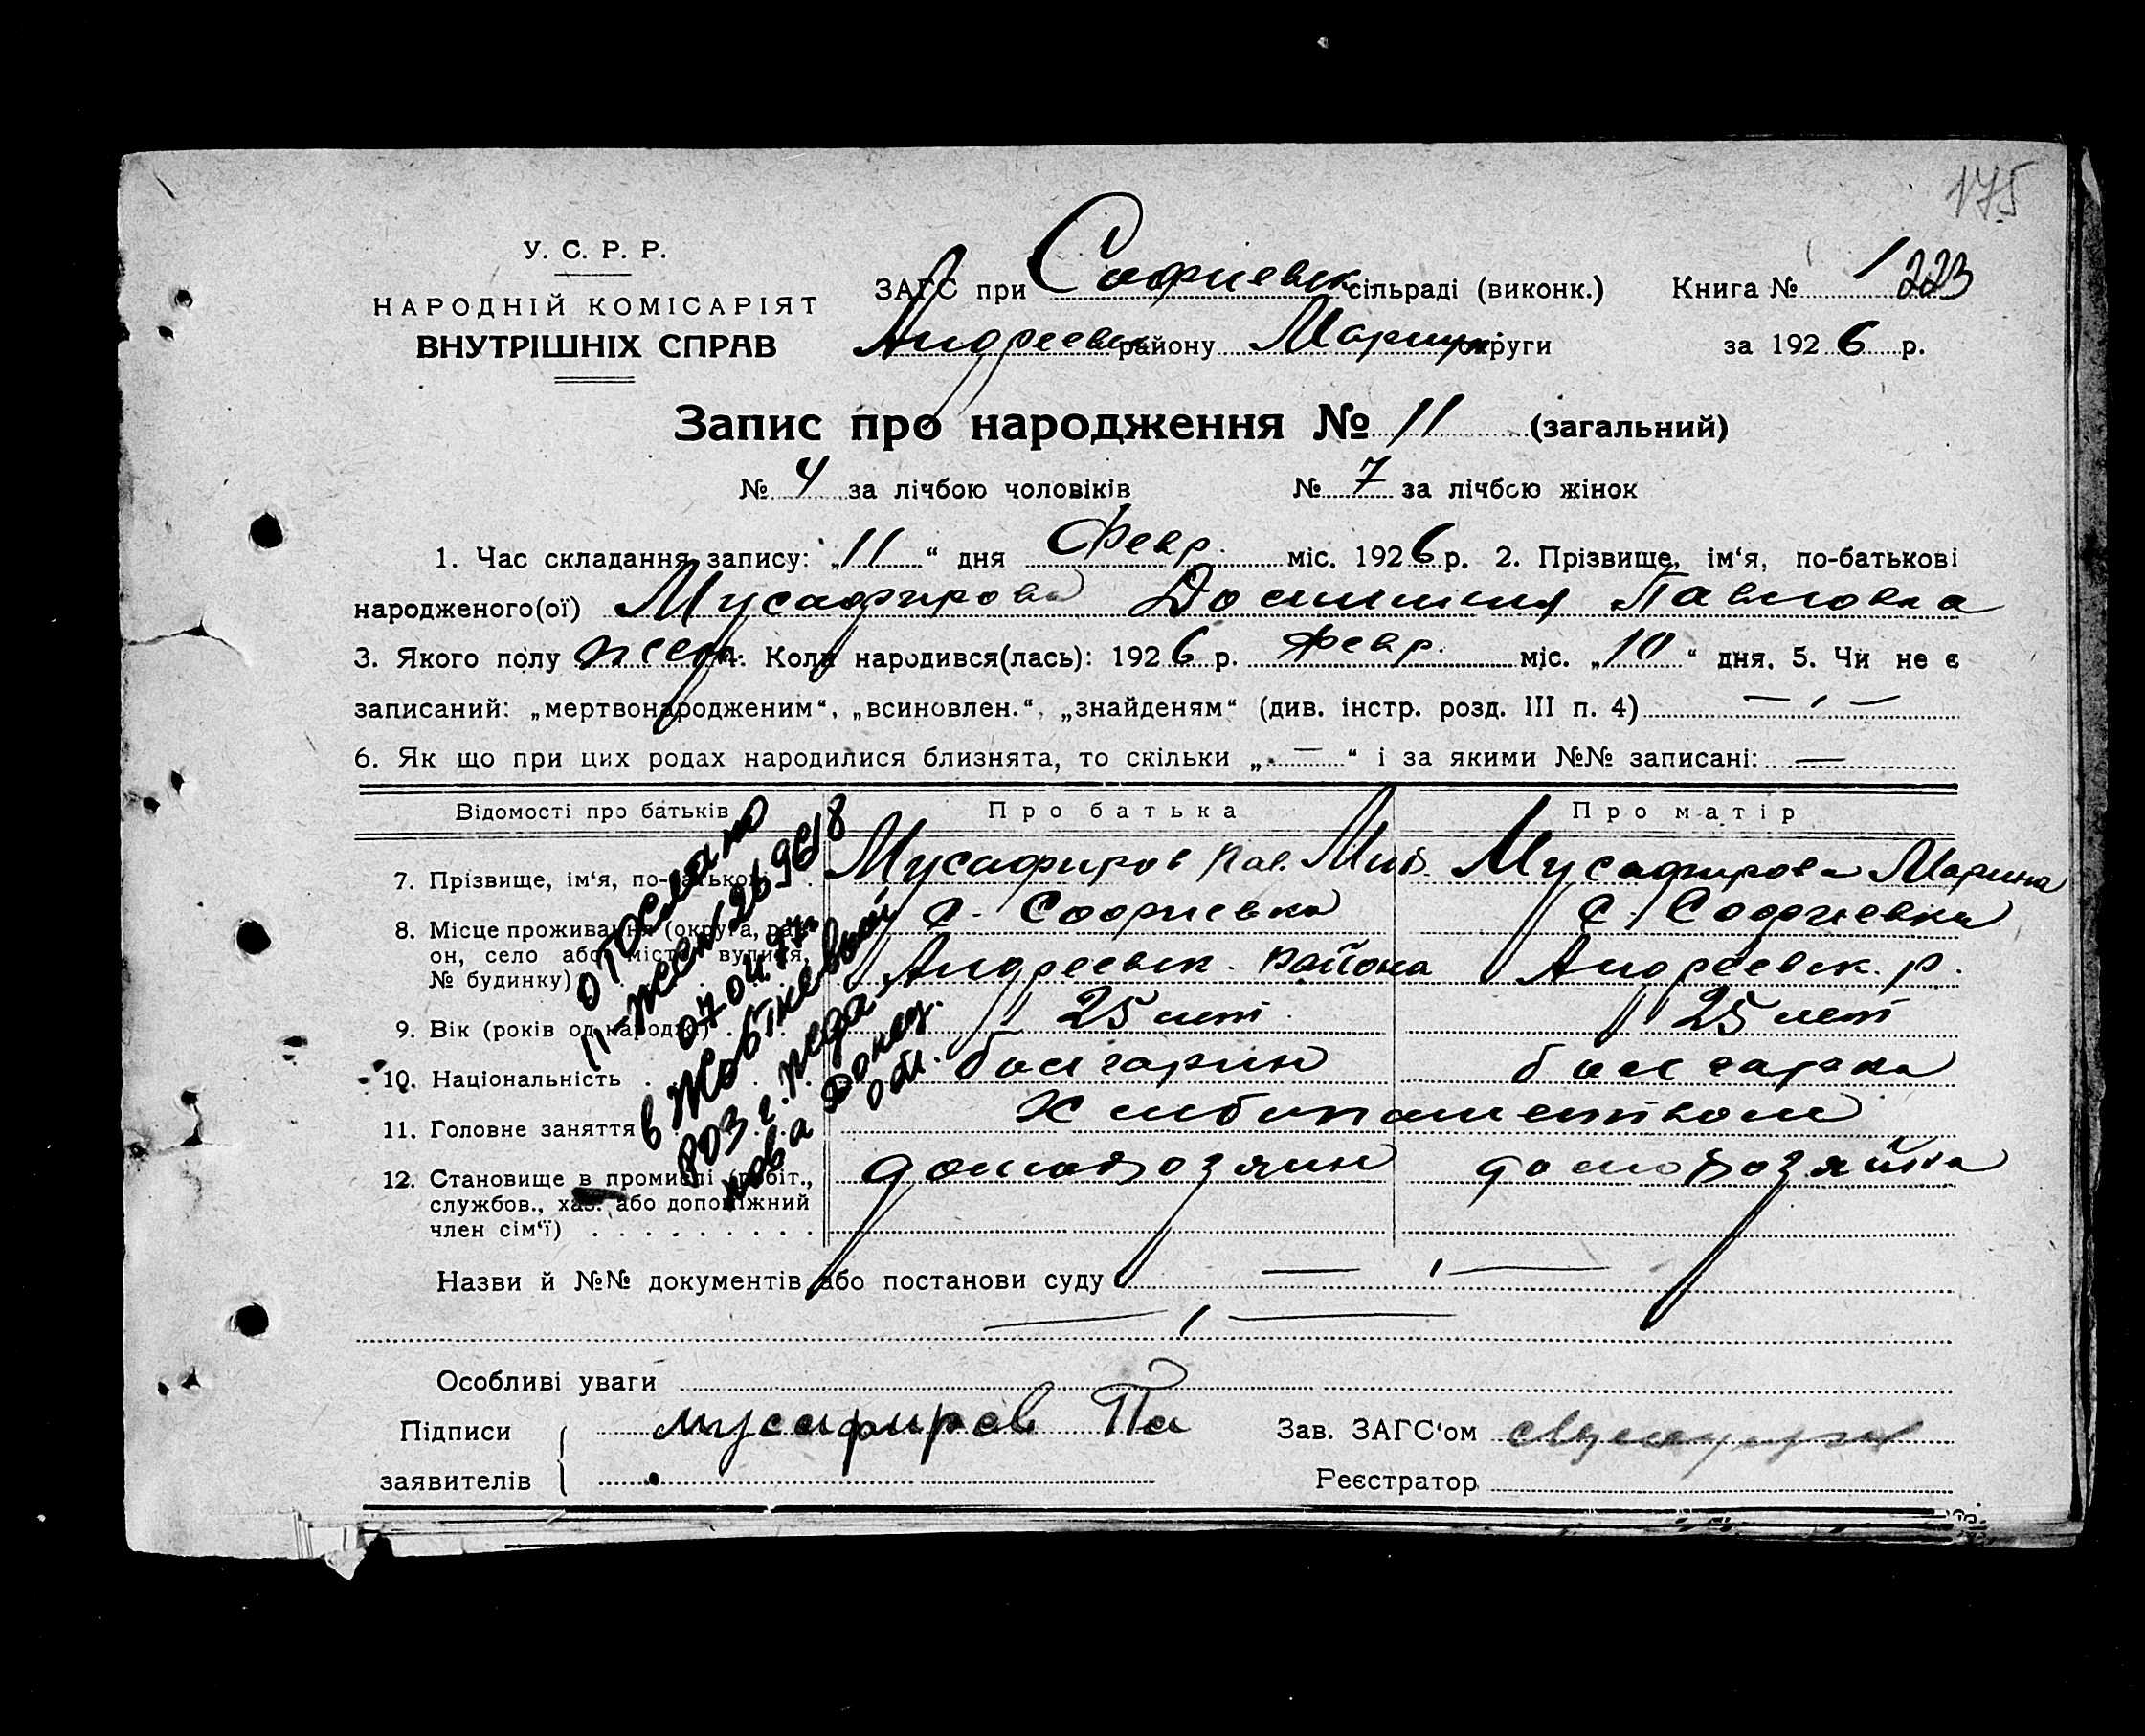 175
У. С. Р. Р.
НАРОДНІЙ КОМІСАРІЯТ
ВНУТРІШНІХ СПРАВ
ЗАГС при Софиевск сільраді (виконк.) Книга № 1 223
Андреевск району Мариуп округи за 1926 р.
Запис про народження № 11 (загальний)
№ 4 за лічбою чоловіків № 7 за лічбою жінок
1. Час складання запису: „11“ дня Февр. міс. 1926 р. 2. Прізвище, ім‘я, по-батькові
народженого(ої) Мусафирова Павловна
3. Якого полу жен. 4. Коли народився(лась): 1926 р. февр. міс. „10“ дня. 5. Чи не є
записаний: „мертвонародженим“, „всиновлен.“, „знайденям“ (див. інстр. розд. III п. 4)
6. Як що при цих родах народилися близнята, то скільки „—“ і за якими №№ записані: —
Відомості про батьків Про батька Про матір
7. Прізвище, ім‘я, по-батькові Мусафиров Пав. Мих. Мусафирова Марина
8. Місце проживання (округа, рай-
он, село або місто, вулиця,
№ будинку)
с. Софиевка с. Софиевка
Андреевск. района Андреевск. р.
9. Вік (років од народж.) 25 лет 25 лет
10. Національність болгарин болгарка
11. Головне заняття Хлебопашеством
12. Становище в промислі (робіт.,
службов., хаз. або допоміжний
член сім‘ї)
домохозяин домохозяйка
отослано
в Жовтневый
803 г. Жда-
нова Донец.
обл.
Назви й №№ документів або постанови суду
Особливі уваги
Підписи
заявителів
мусафиров Па
Зав. ЗАГС‘ом
Реєстратор